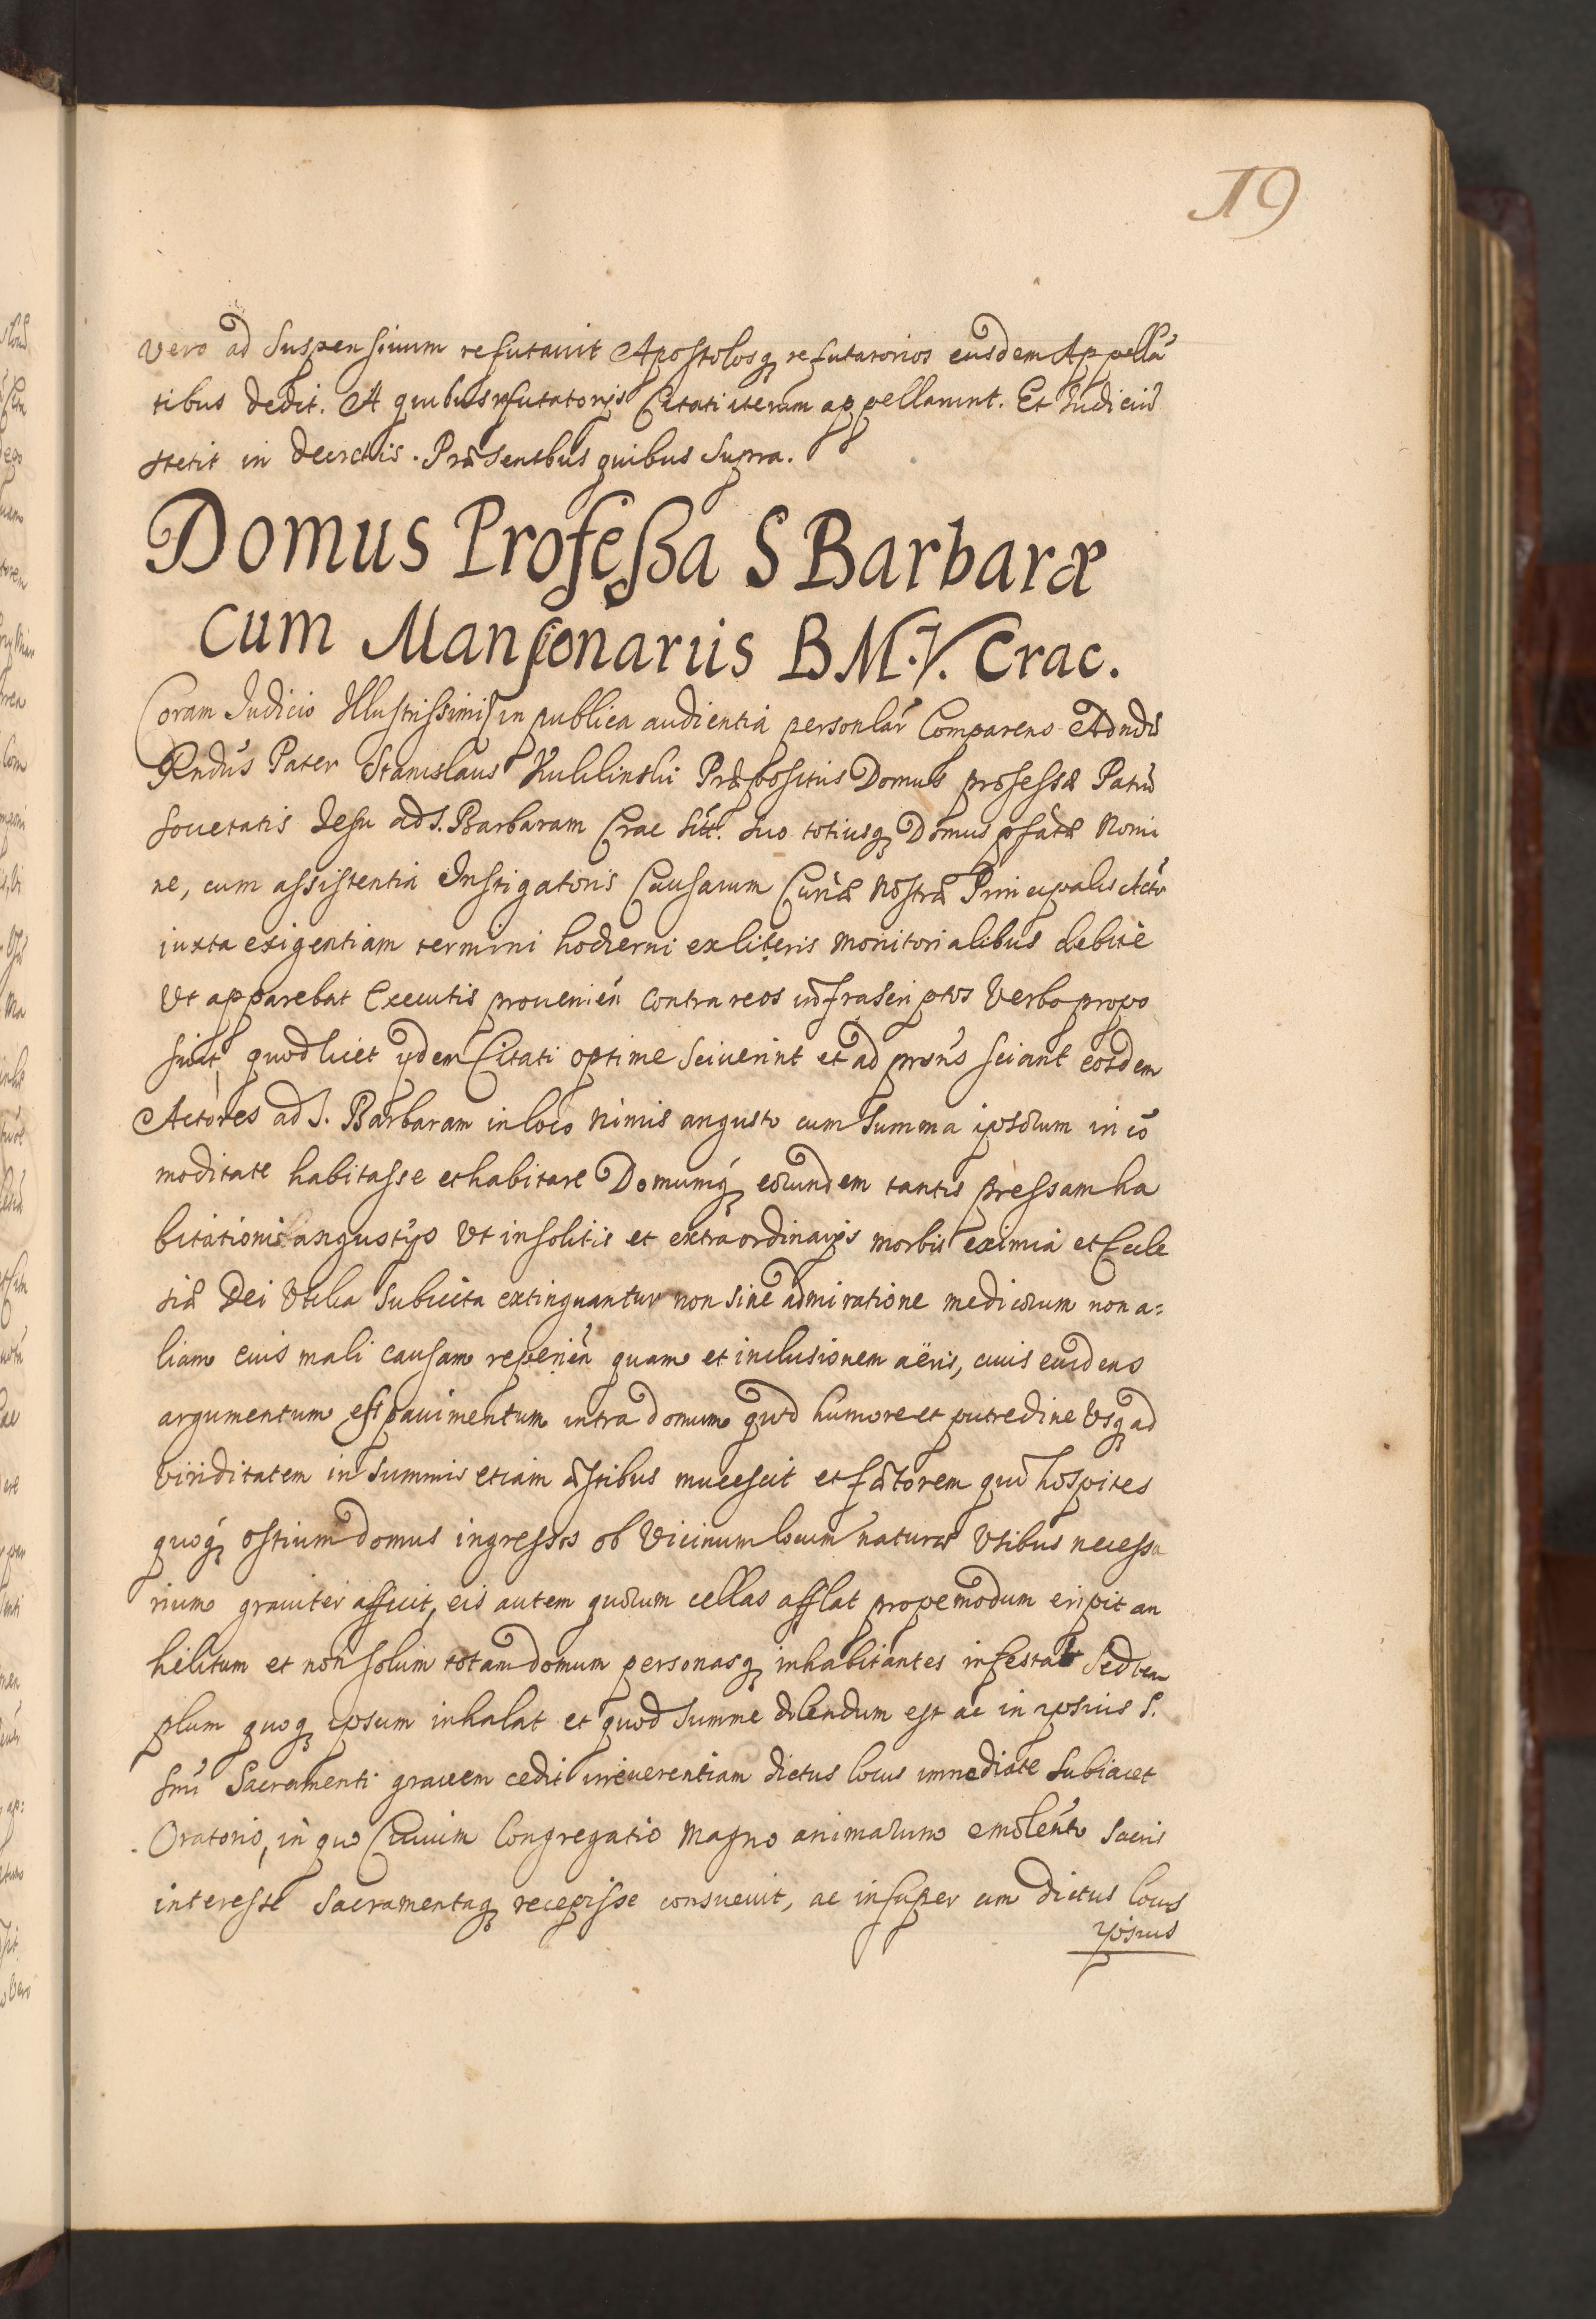 19
vero ad Suspensiuum refutauit Apostolosq refutatorios eisdem Appellā
tibus dedit. A quibus refutatorijs Citati iterum appellarunt. Et Iudiciū
stetit in decretis. Præsentibus quibus Supra.
Domus Professa S Barbaræ
cum Mansionariis B M. V. Crac.
Coram Iudicio Illustrissimi in publica audientia personlar Comparens Adnds
Rndus Pater Stanislaus Kuklinski Præpositus Domus professæ Patrū
Societatis Iesu ad S. Barbaram Crac sitt. suo totiusq Domus pfatæ Nomi
ne, cum assistentia Instigatoris Causarum Curiæ Nostræ Principalis Acto
iuxta exigentiam termini hodierni ex literis monitorialibus debite
Vt apparebat Executis prouenien contra reos infrascriptos Verbo propo
suit, quod licet ydem Citati optime sciuerint et ad prsns sciant eosdem
Actores ad S. Barbaram in loco nimis angusto cum Summa ipsorum in cō
moditate habitasse et habitare Domumq eorundem tantis pressam ha
bitationis angustijs Vt insolitis et extraordinarijs morbis eximia et Eccle
siæ Dei Vtilia Subiecta extinguantur non sine admiratione medicorum non a=
liam euis mali causam reperien quam et inclusionem aëris, cuius euidens
argumentum est pauimentum intra domum quod humore et putredine Vsq ad
viriditatem in Summis etiam æstibus mucescit et fætorem qui hospites
quoq ostium domus ingressos ob Vicinum locum naturæ Vsibus necessa
rium grauiter afficit, eis autem quorum cellas afflat propemodum eripit an
helitum et non solum totam domum personasq inhabitantes infestat Sed tem
plum quoq ipsum inhalat et quod Summe dolendum est ac in ipsius S.
smi Sacramenti grauem cedit irreuerentiam dictus locus immediate Subiacet
Oratorio, in quo Ciuium Congregatio Magno animarum emolento Sacris
interesse Sacramentaq recepisse consueuit, ac insuper cum dictus locus
ipsius